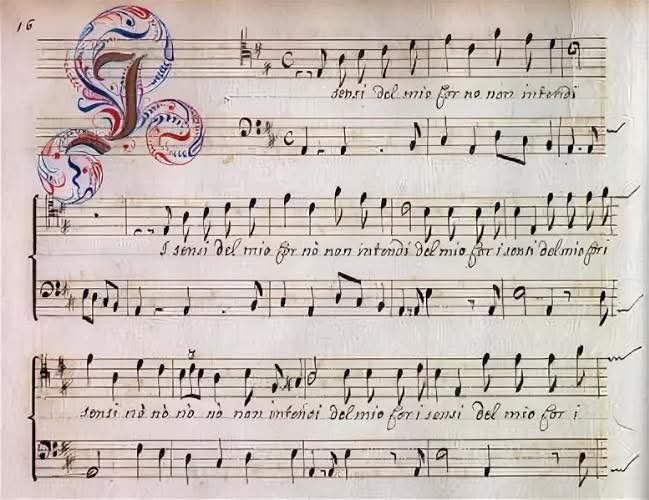 16
I
sensi del mio cor no non intendi
I sensi del mio cor nò non intendi del mio cor i sensi del mio cor i
sensi nò nò nò nò non intendi del mio cor i sensi del mio cor i